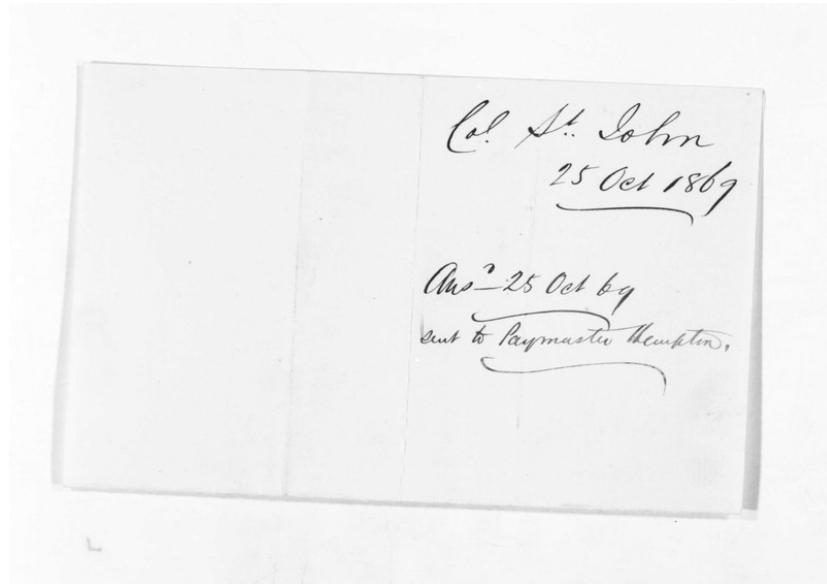 Col. St. John
25 Oct 1869
Ansd - 25 Oct 69
sent to Paymaster